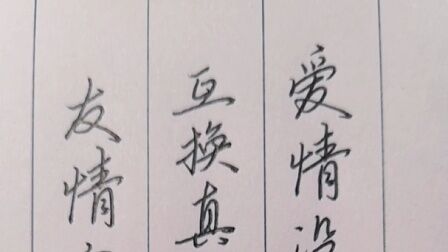 爱情没
互换真
友情